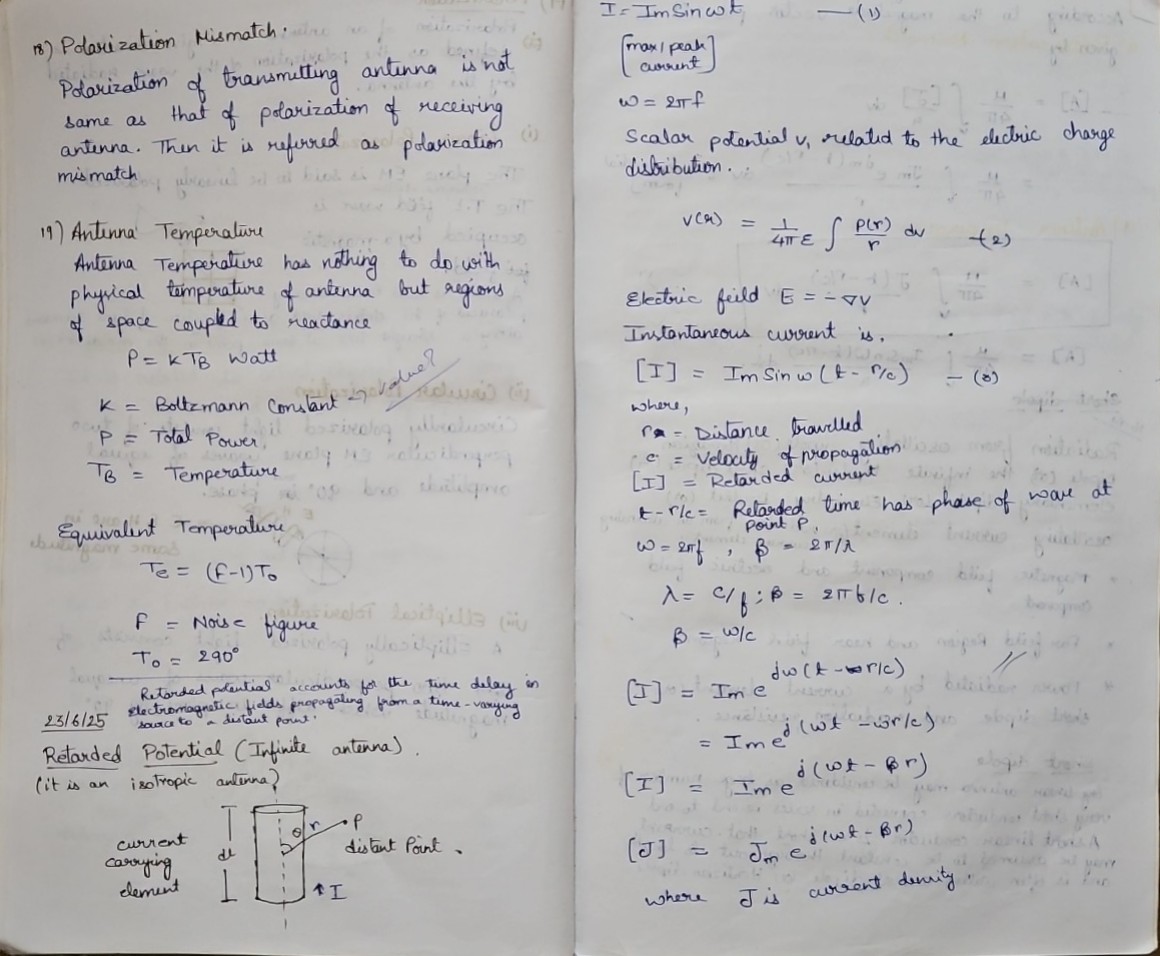 18) Polarization Mismatch:
Polarization of transmitting antenna is not
same as that of polarization of receiving
antenna. Then it is referred as polarization
mismatch
19) Antenna Temperature
Antenna Temperature has nothing to do with
physical temperature of antenna but regions
of space coupled to reactance
P = KTB Watt
K = Boltzmann Constant → value?
P = Total Power.
TB = Temperature
Equivalent Temperature
Te = (F-1)To
F = Noise figure
To = 290°
Retarded potential accounts for the time delay in
23/6/25 electromagnetic fields propagating from a time-varying
source to a distant point.
Retarded Potential (Infinite antenna).
(it is an isotropic antenna)
current
carrying
element
dl
θ
r
P
distant Point.
↑ I
I = Im Sin ωt — (1)
[max/peak
current]
ω = 2πf
Scalar potential v, related to the electric charge
distribution.
v(r) = 1/4πε ∫ ρ(r)/r dv -(2)
Electric feild E = -∇V
Instantaneous current is,
[I] = Im Sin ω (t - r/c) - (3)
where,
r = Distance travelled
c = Velocity of propagation
[I] = Retarded current
t - r/c = Retarded time has phase of wave at
point P.
ω = 2πf , β = 2π/λ
λ = c/f ; β = 2πf/c.
β = ω/c
[I] = Im e^jω(t - r/c)
= Im e^j(ωt - ωr/c)
[I] = Im e^j(ωt - βr)
[J] = Jm e^j(ωt - βr)
where J is current density.